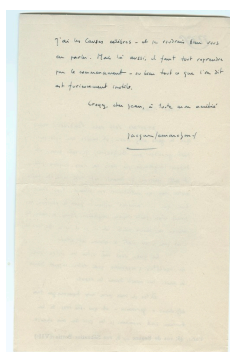 J'ai les Causes célèbres - et je voudrais bien vous
en parler. Mais là aussi, il faut tout reprendre
par le commencement - ou bien tout ce que l'on dit
est forcément inutile.
Croyez, cher Jean, à toute mon amitié